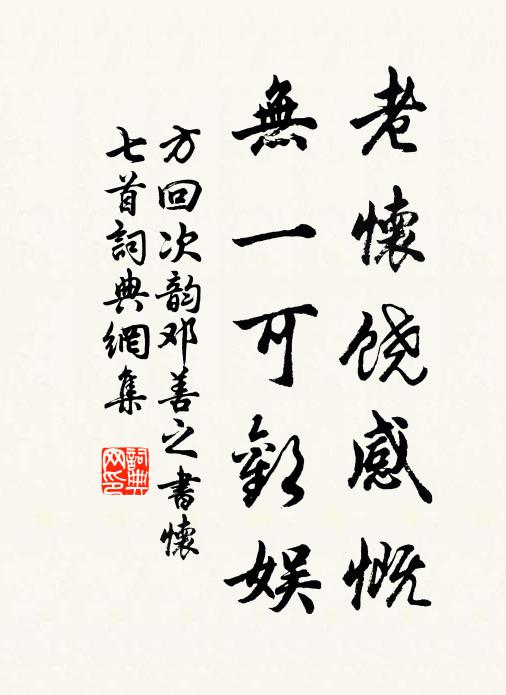 老懷饶感慨
無一可歡娱
方回次韵邓善之書懷
七首詞典網集
詞典网印